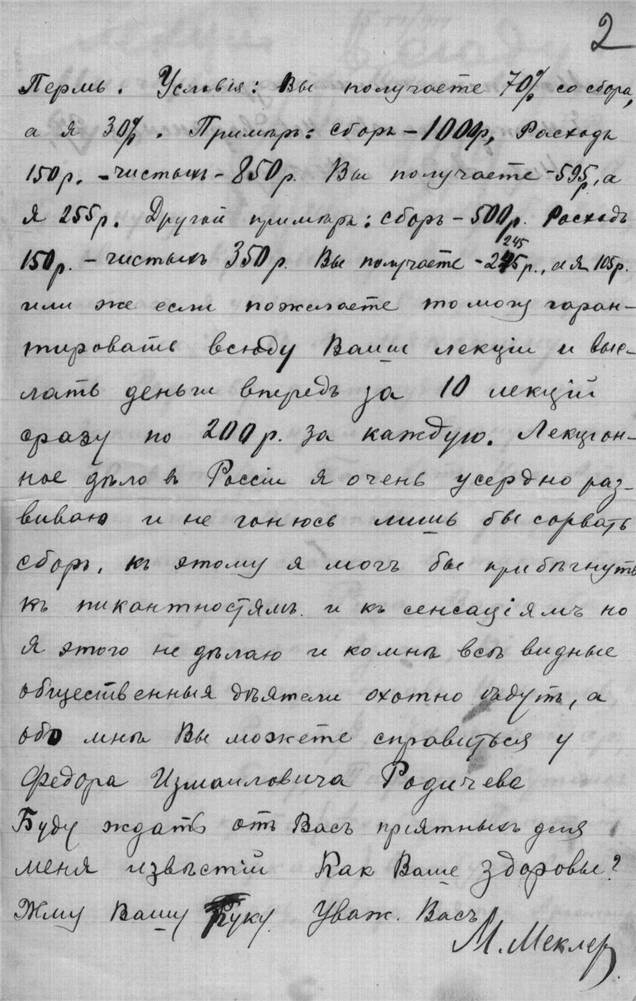 2
Пермь. Условія: Вы получаете 70% со сбора,
а я 30%. Примѣръ: сборъ – 1000р, Расходъ
150р. – чистыхъ – 850р. Вы получаете – 595р, а
я 255р. Другой примѣръ: сборъ – 500р. Расходъ
150р. – чистыхъ 350р. Вы получаете – 245р., а я 105р.
245
или же если пожелаете то могу гаран-
тировать всюду Ваши лекціи и выс-
лать деньги впередъ за 10 лекцій
сразу по 200р. за каждую. Лекціон-
ное дѣло в Россіи я очень усердно раз-
виваю и не гонюсь лишь бы сорвать
сборъ, къ этому я могъ бы прибѣгнуть
къ пикантностямъ и къ сенсаціямъ но
я этого не дѣлаю и ко мнѣ всѣ видные
общественныя дѣятели охотно идутъ, а
обо мнѣ Вы можете справиться у
Федора Измаиловича Родичева
Буду ждать отъ Васъ пріятныхъ для
меня извѣстій Как Ваше здоровье?
Жму Вашу Руку. Уваж. Васъ
М. Меклер